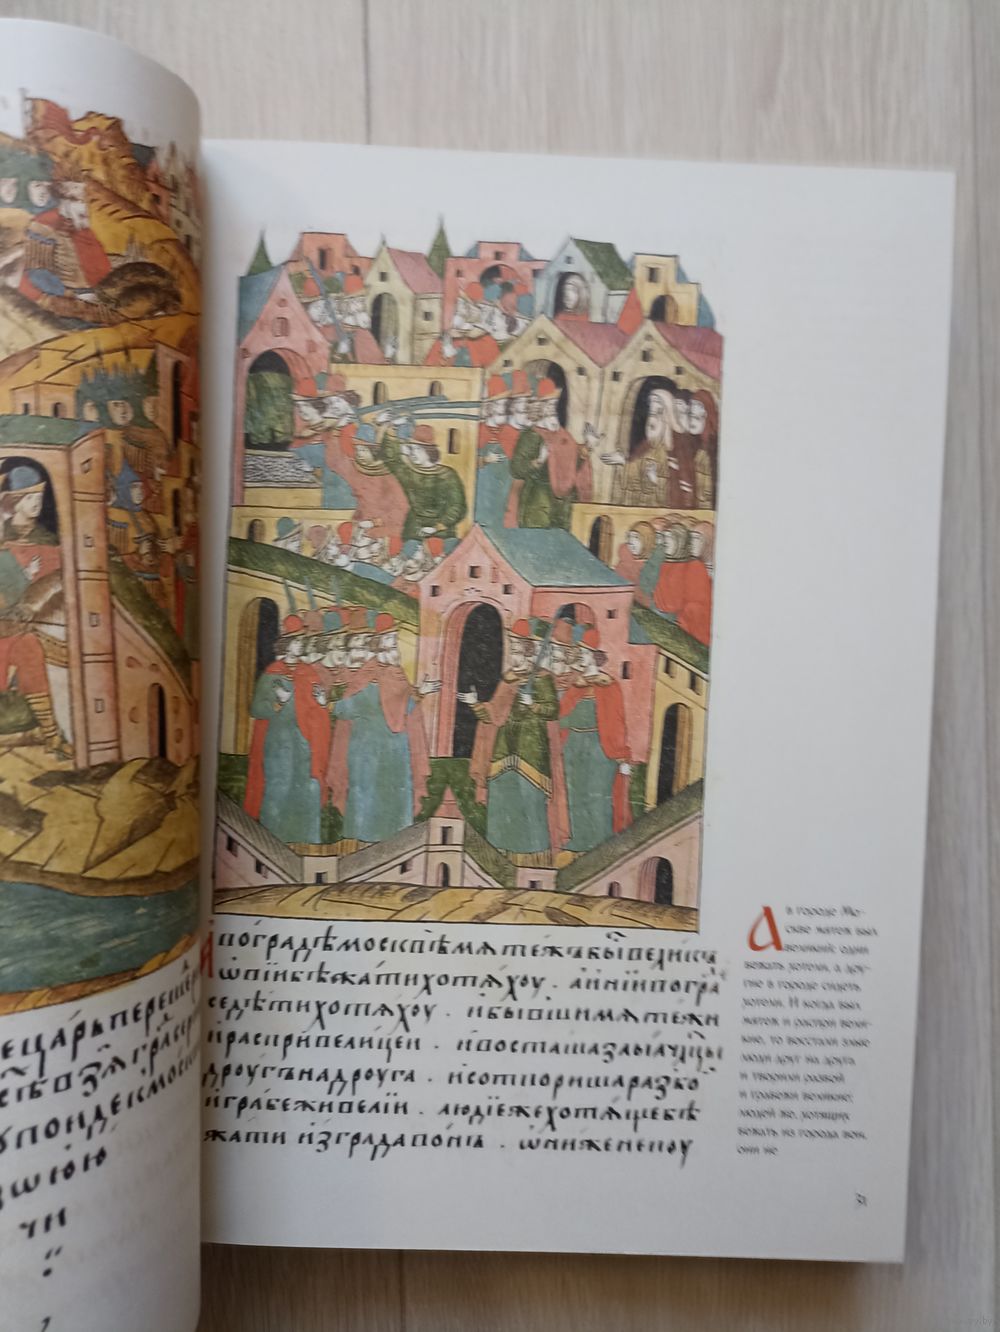 ецарьпереше
упонделмоско
зшюю
чи
А поградѣмосквѣмѧтежъбывеликъ
ѡвїибѣжатихотѧхоу. аинїивогра
седѣтихотѧхоу. ибывшимѧтежи
ираспривелицеи. ивосташазлыачлцы
дроугънадроуга. исотвориша разбо
играбеживелїи. людїежехотѧщебѣ
жати изградавонъ. ѡниженевоу
А в городе Мо-
скве мятеж был
великий: одни
бежать хотели, а дру-
гие в городе сидеть
хотели. И когда был
мятеж и распри вели-
кие, то восстали злые
люди друг на друга
и творили разбой
и грабежи великие;
людей же, хотящих
бежать из города вон,
они не
31